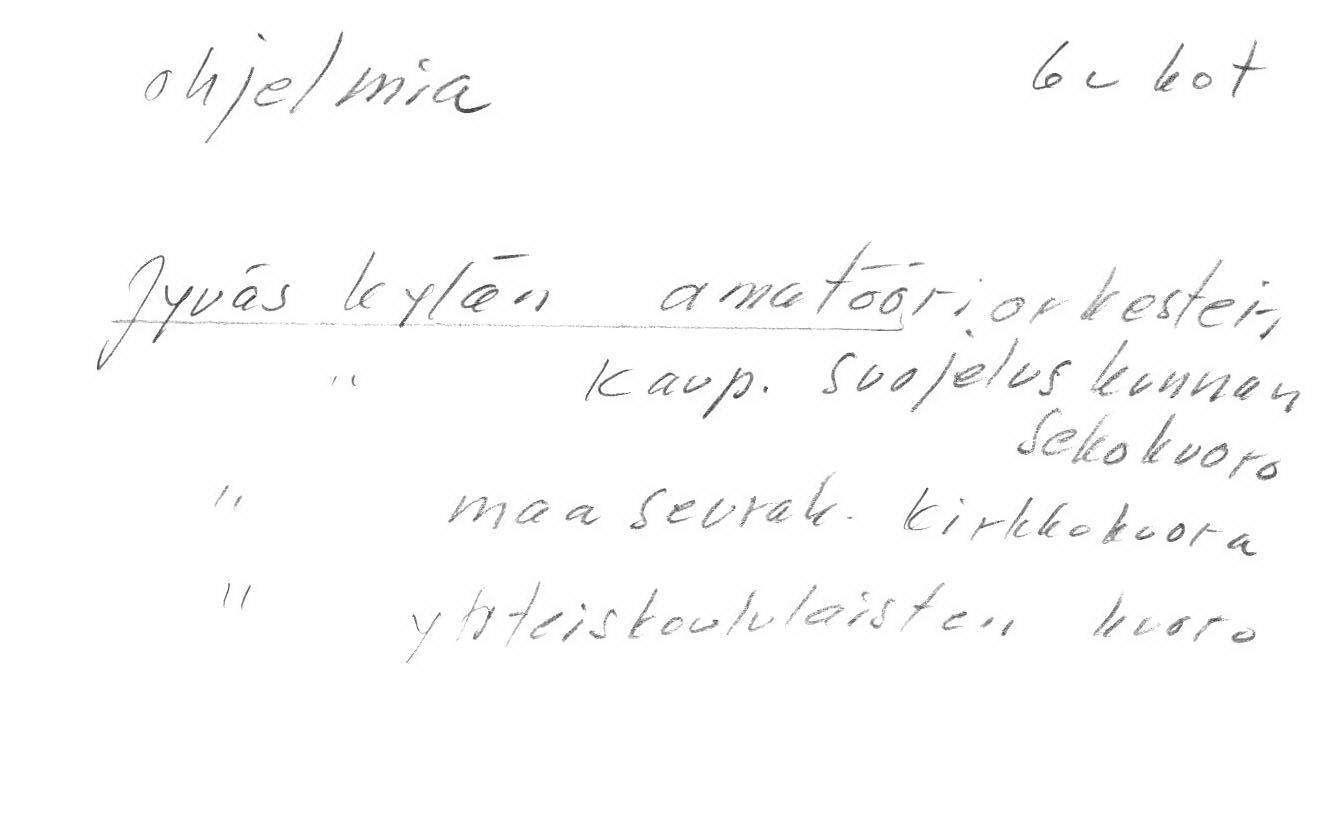 ohjelmia kot
Jyväskylän amatööriorkesteri,
" Kaup. suojeluskunnan
sekokuoro
" maaseurak. Kirkkokuoro
" yhteiskoululaisten kuoro